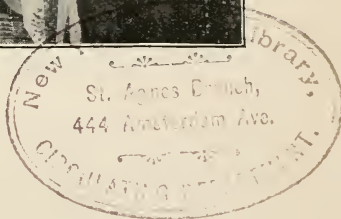 New Library,
St. Agnes Branch,
444 Amsterdam Ave.
CIRCULATING DEPARTMENT.